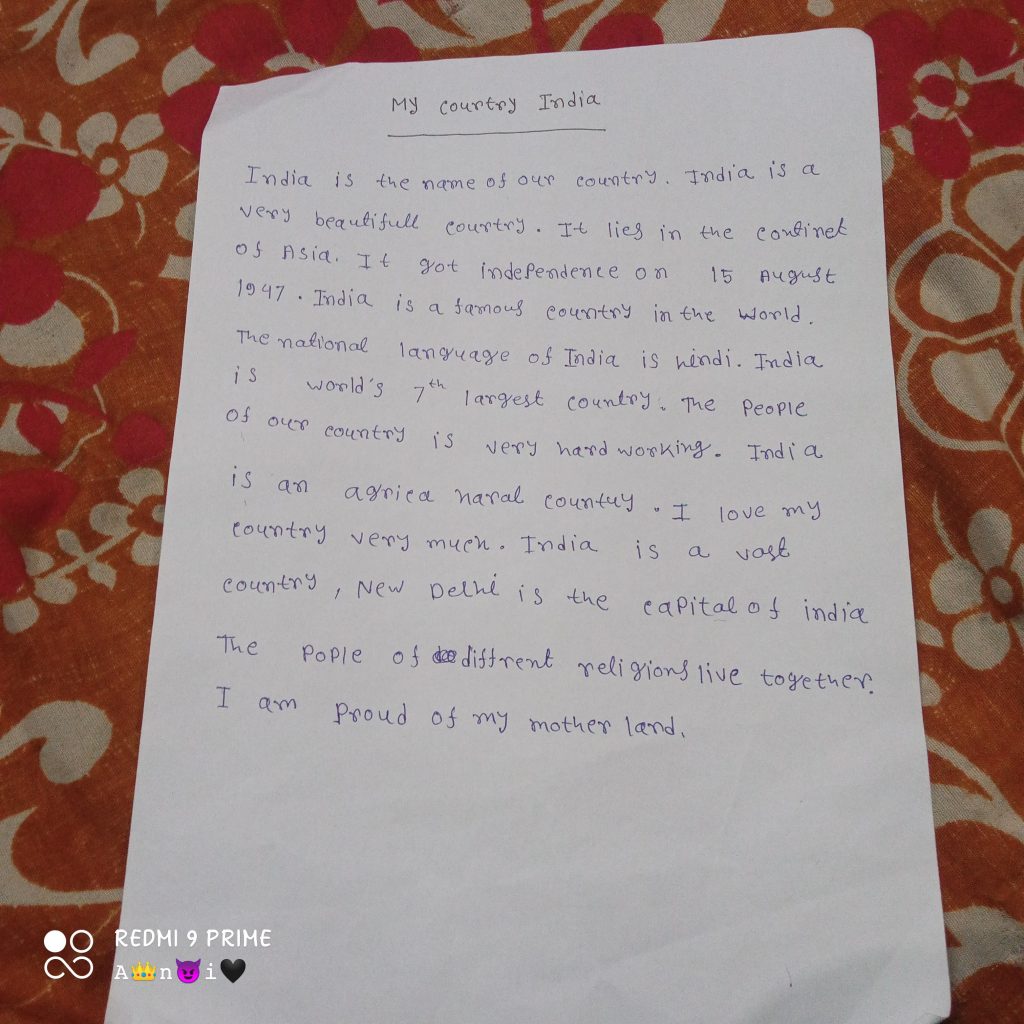 My country India
India is the name of our country. India is a
very beautifull country. It lies in the continet
of Asia. It got independence on 15 August
1947. India is a famous country in the world.
The national language of India is hindi. India
is world's 7th largest country. The People
of our country is very hard working. India
is an agrica naral countuy. I love my
country very much. India is a vast
country, New Delhi is the capital of india
The Pople of diffrent religions live together.
I am Proud of my mother land.
REDMI 9 PRIME
A👑n😈i🖤